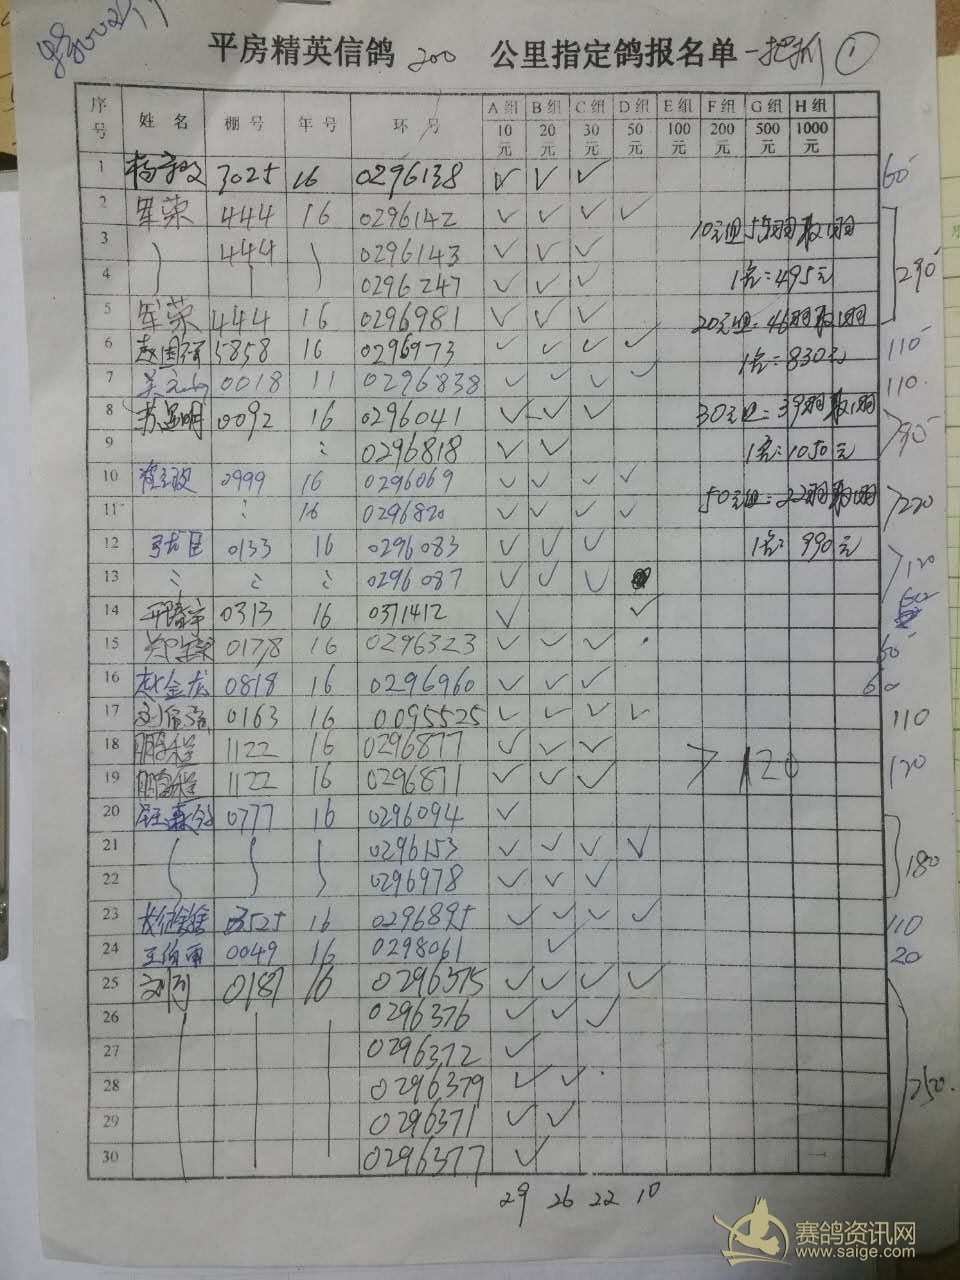 平房精英信鸽 200 公里指定鸽报名单 一把抓 ①
序号 姓名 棚号 年号 环号 A组 10元 B组 20元 C组 30元 D组 50元 E组 100元 F组 200元 G组 500元 H组 1000元
1 3025 16 0296138 ✓ ✓ ✓ 60
2 军荣 444 16 0296142 ✓ ✓ ✓ ✓
10元组55羽取1羽
3 444 0296143 ✓ ✓ ✓
290
4 0296247 ✓ ✓ ✓
1名:495元
5 军荣 444 16 0296981 ✓ ✓ ✓
20元组:46羽取1羽
6 5858 16 0296973 ✓ ✓ ✓ ✓ 110
1名:830元
7 0018 11 0296838 ✓ ✓ ✓ ✓ 110
8 0092 16 0296041 ✓ ✓ ✓
30元组:39羽取1羽
90
9 0296818 ✓ ✓
1名:1050元
10 0999 16 0296069 ✓ ✓ ✓ ✓
50元组:22羽取1羽
220
11 16 0296820 ✓ ✓ ✓ ✓
12 0133 16 0296083 ✓ ✓ ✓
1名:990元
120
13 0296087 ✓ ✓ ✓
14 0313 16 0371412 ✓ ✓ 60
15 0178 16 0296323 ✓ ✓ ✓ 60
16 赵金龙 0818 16 0296960 ✓ ✓ ✓ 60
17 0163 16 0095525 ✓ ✓ ✓ ✓ 110
18 鹏程 1122 16 0296877 ✓ ✓ ✓
> 120
120
19 鹏程 1122 16 0296871 ✓ ✓ ✓
20 0777 16 0296094 ✓
21 0296153 ✓ ✓ ✓ ✓
180
22 0296978 ✓ ✓ ✓
23 3525 16 0296895 ✓ ✓ ✓ ✓ 110
24 0049 16 0298061 ✓ 20
25 0187 16 0296375 ✓ ✓ ✓ ✓
26 0296376 ✓ ✓ ✓
27 0296372 ✓
28 0296379 ✓ ✓
250
29 0296371 ✓ ✓
30 0296377 ✓
29 26 22 10
赛鸽资讯网
www.saige.com